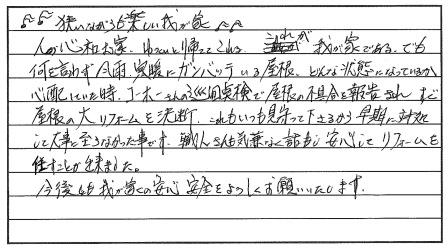 狭いながらも楽しい我が家
人の心和む家、ゆっくりと帰ってこれる、これが我が家である。でも
何も言わず今雨、寒暖にガンバッている屋根、どんな状態になっているか
心配していた時、さんの巡回点検で屋根の不具合を報告され、すぐ
屋根の大リフォームを決断、これもいつも見守って下さるから早期に対処
して大事に至らなかった事です。職人さんも気兼なく話もし安心してリフォームを
任すことが出来ました。
今後も我が家の安心安全をよろしくお願いいたします。